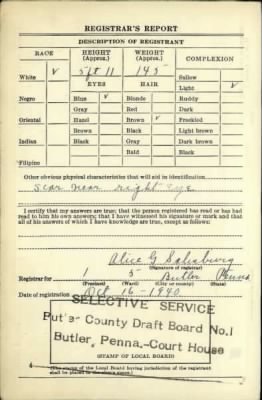 REGISTRAR'S REPORT
DESCRIPTION OF REGISTRANT
RACE HEIGHT (Approx.) WEIGHT (Approx.) COMPLEXION
White ✓ 5 ft 11 145 Sallow
EYES HAIR Light ✓
Negro Blue ✓ Blonde Ruddy
Gray Red Dark
Oriental Hazel Brown ✓ Freckled
Brown Black Light brown
Indian Black Gray Dark brown
Bald Black
Filipino
Other obvious physical characteristics that will aid in identification
Scar near right eye
I certify that my answers are true; that the person registered has read or has had
read to him his own answers; that I have witnessed his signature or mark and that
all of his answers of which I have knowledge are true, except as follows:
Alice G Salisbury
(Signature of registrar)
Registrar for 1 5 Butler Penna
(Precinct) (Ward) (City or county) (State)
Date of registration Oct 16 - 1940
SELECTIVE SERVICE
Butler County Draft Board No. 1
Butler, Penna.-Court House
(STAMP OF LOCAL BOARD)
(The stamp of the Local Board having jurisdiction of the registrant
shall be placed in the above space.)